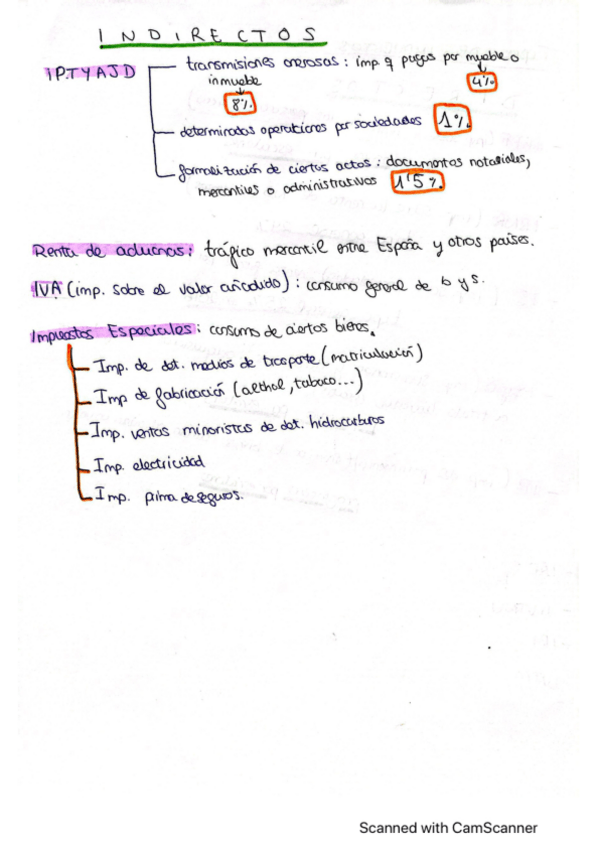 INDIRECTOS
IPTYAJD
transmisiones onerosas: imp. q pagas por mueble o
inmueble
4%
8%
determinadas operaciones por sociedades 1%
formalización de ciertos actos: documentos notariales,
mercantiles o administrativos 1'5%
Renta de aduanas: tráfico mercantil entre España y otros países.
IVA (imp. sobre el valor añadido): consumo general de b y s.
Impuestos Especiales: consumo de ciertos bienes.
Imp. de det. medios de trasporte (matriculación)
Imp de fabricación (alchol, tabaco...)
Imp. ventas minoristas de det. hidrocarburos
Imp. electricidad
Imp. prima de seguros.
Scanned with CamScanner